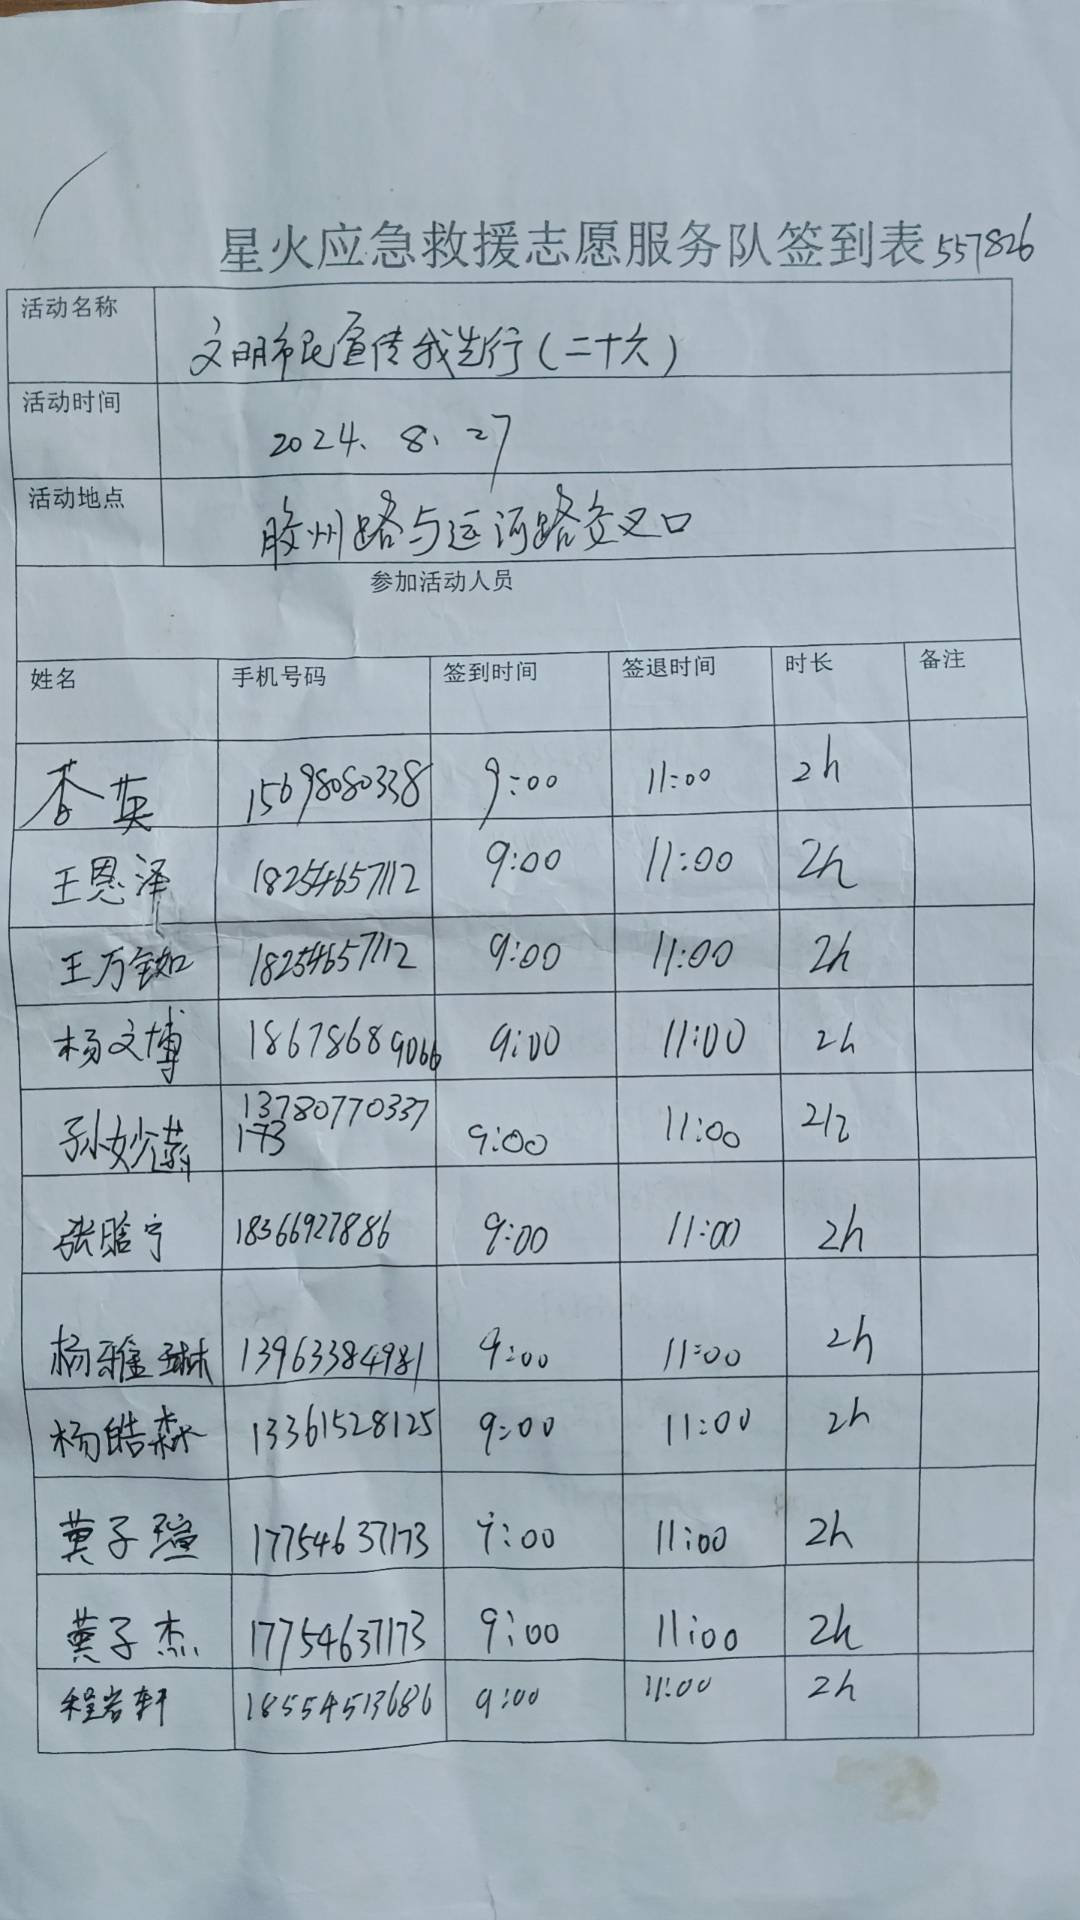 星火应急救援志愿服务队签到表 557826
活动名称 文明市民宣传我先行(二十六)
活动时间 2024、8、27
活动地点 胶州路与运河路交叉口
参加活动人员
姓名 手机号码 签到时间 签退时间 时长 备注
英 15698080338 9:00 11:00 2h
王恩泽 18254657112 9:00 11:00 2h
王万 18254657112 9:00 11:00 2h
杨文博 18678689066 9:00 11:00 2h
13780770337
孙妙蕊 173 9:00 11:00 2h
张晗宁 18366927886 9:00 11:00 2h
杨雅琳 13963384981 9:00 11:00 2h
杨皓森 13361528125 9:00 11:00 2h
黄子瑄 17754637173 9:00 11:00 2h
黄子杰 17754637173 9:00 11:00 2h
程岩轩 18554513686 9:00 11:00 2h